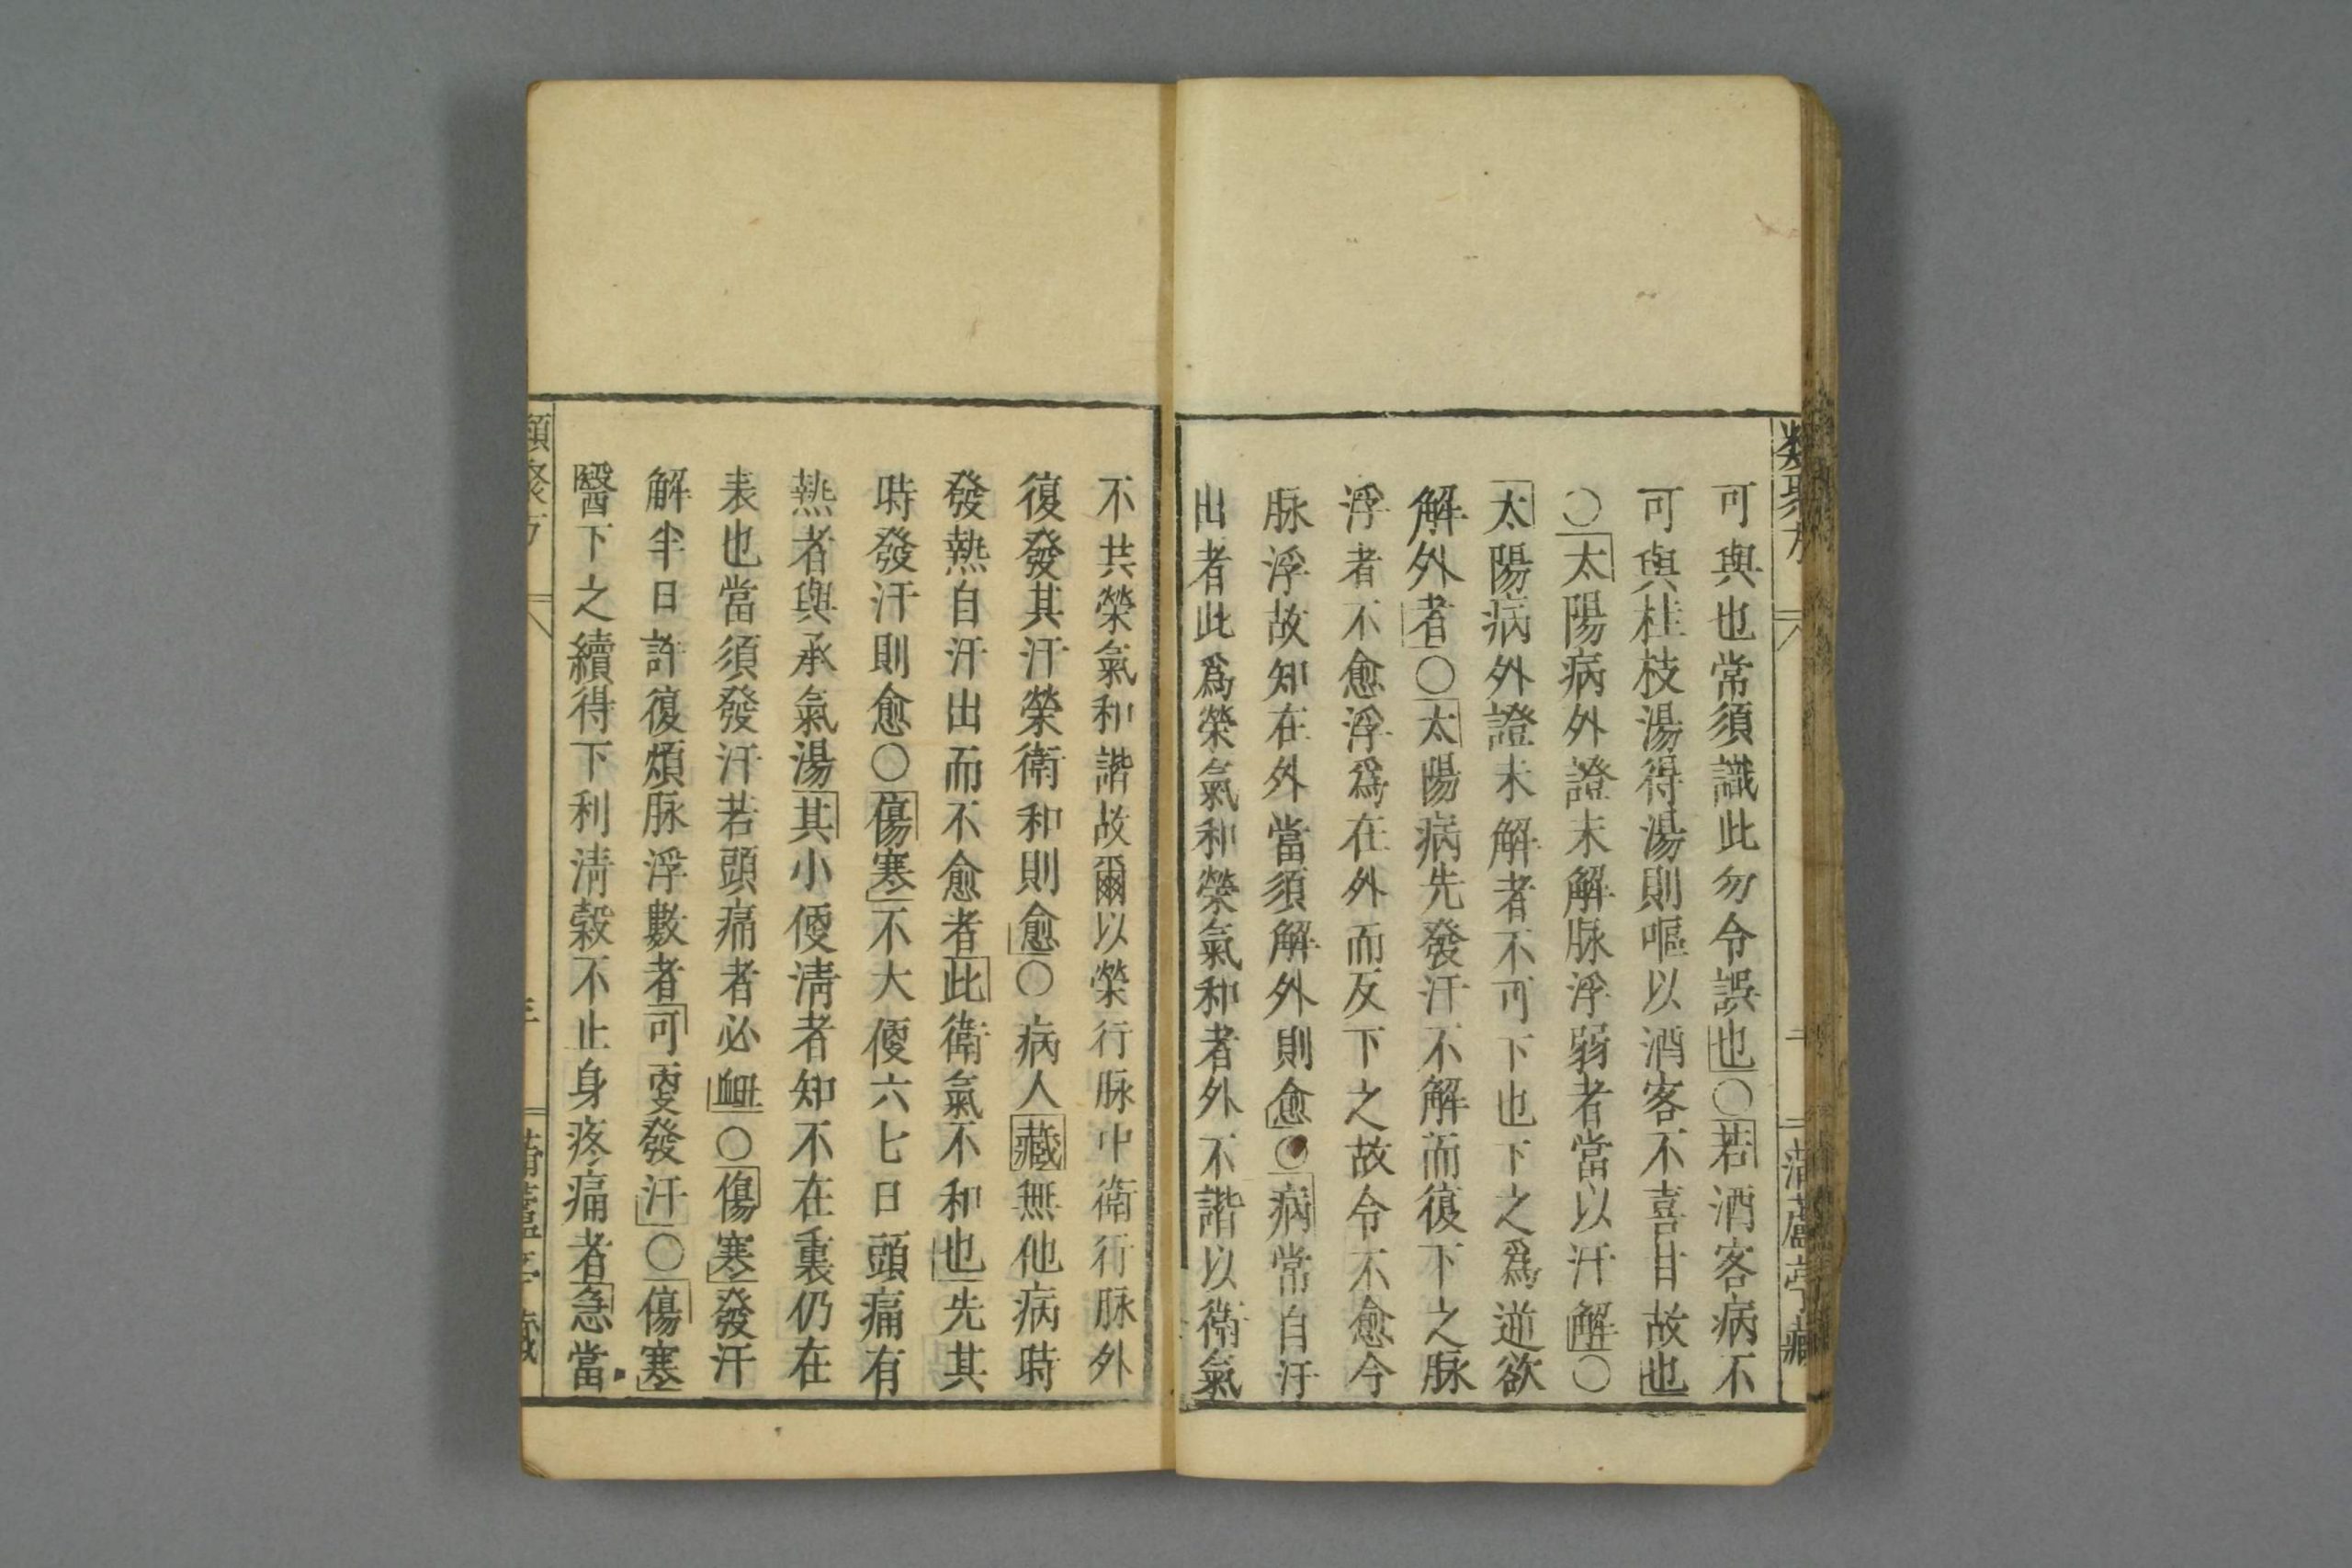 類聚方
二
可與也常須識此勿令誤也○若酒客病不
可與桂枝湯得湯則嘔以酒客不喜甘故也
○太陽病外證未解脉浮弱者當以汗解○
太陽病外證未解者不可下也下之爲逆欲
解外者○太陽病先發汗不解而復下之脉
浮者不愈浮爲在外而反下之故令不愈今
脉浮故知在外當須解外則愈○病常自汗
出者此爲榮氣和榮氣和者外不諧以衛氣
不共榮氣和諧故爾以榮行脉中衛行脉外
復發其汗榮衛和則愈○病人藏無他病時
發熱自汗出而不愈者此衛氣不和也先其
時發汗則愈○傷寒不大便六七日頭痛有
熱者與承氣湯其小便淸者知不在裏仍在
表也當須發汗若頭痛者必衄○傷寒發汗
解半日許復煩脉浮數者可更發汗○傷寒
醫下之續得下利淸穀不止身疼痛者急當
類聚方
三